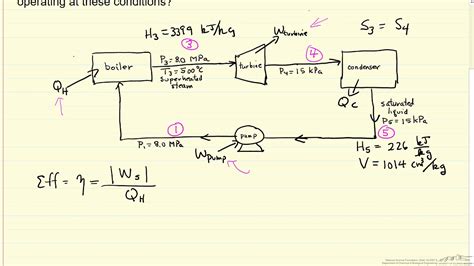 operating at these conditions?
H3 = 3399 kJ/kg
Wturbine
S3 = S4
③
④
boiler
P3 = 8.0 MPa
T3 = 500°C
Superheated
steam
turbine
P4 = 15 kPa
condenser
QH
QC
saturated
liquid
P5 = 15 kPa
①
pump
⑤
P1 = 8.0 MPa
Wpump
H5 = 226 kJ/kg
V = 1014 cm³/kg
Eff = η = |Ws| / QH